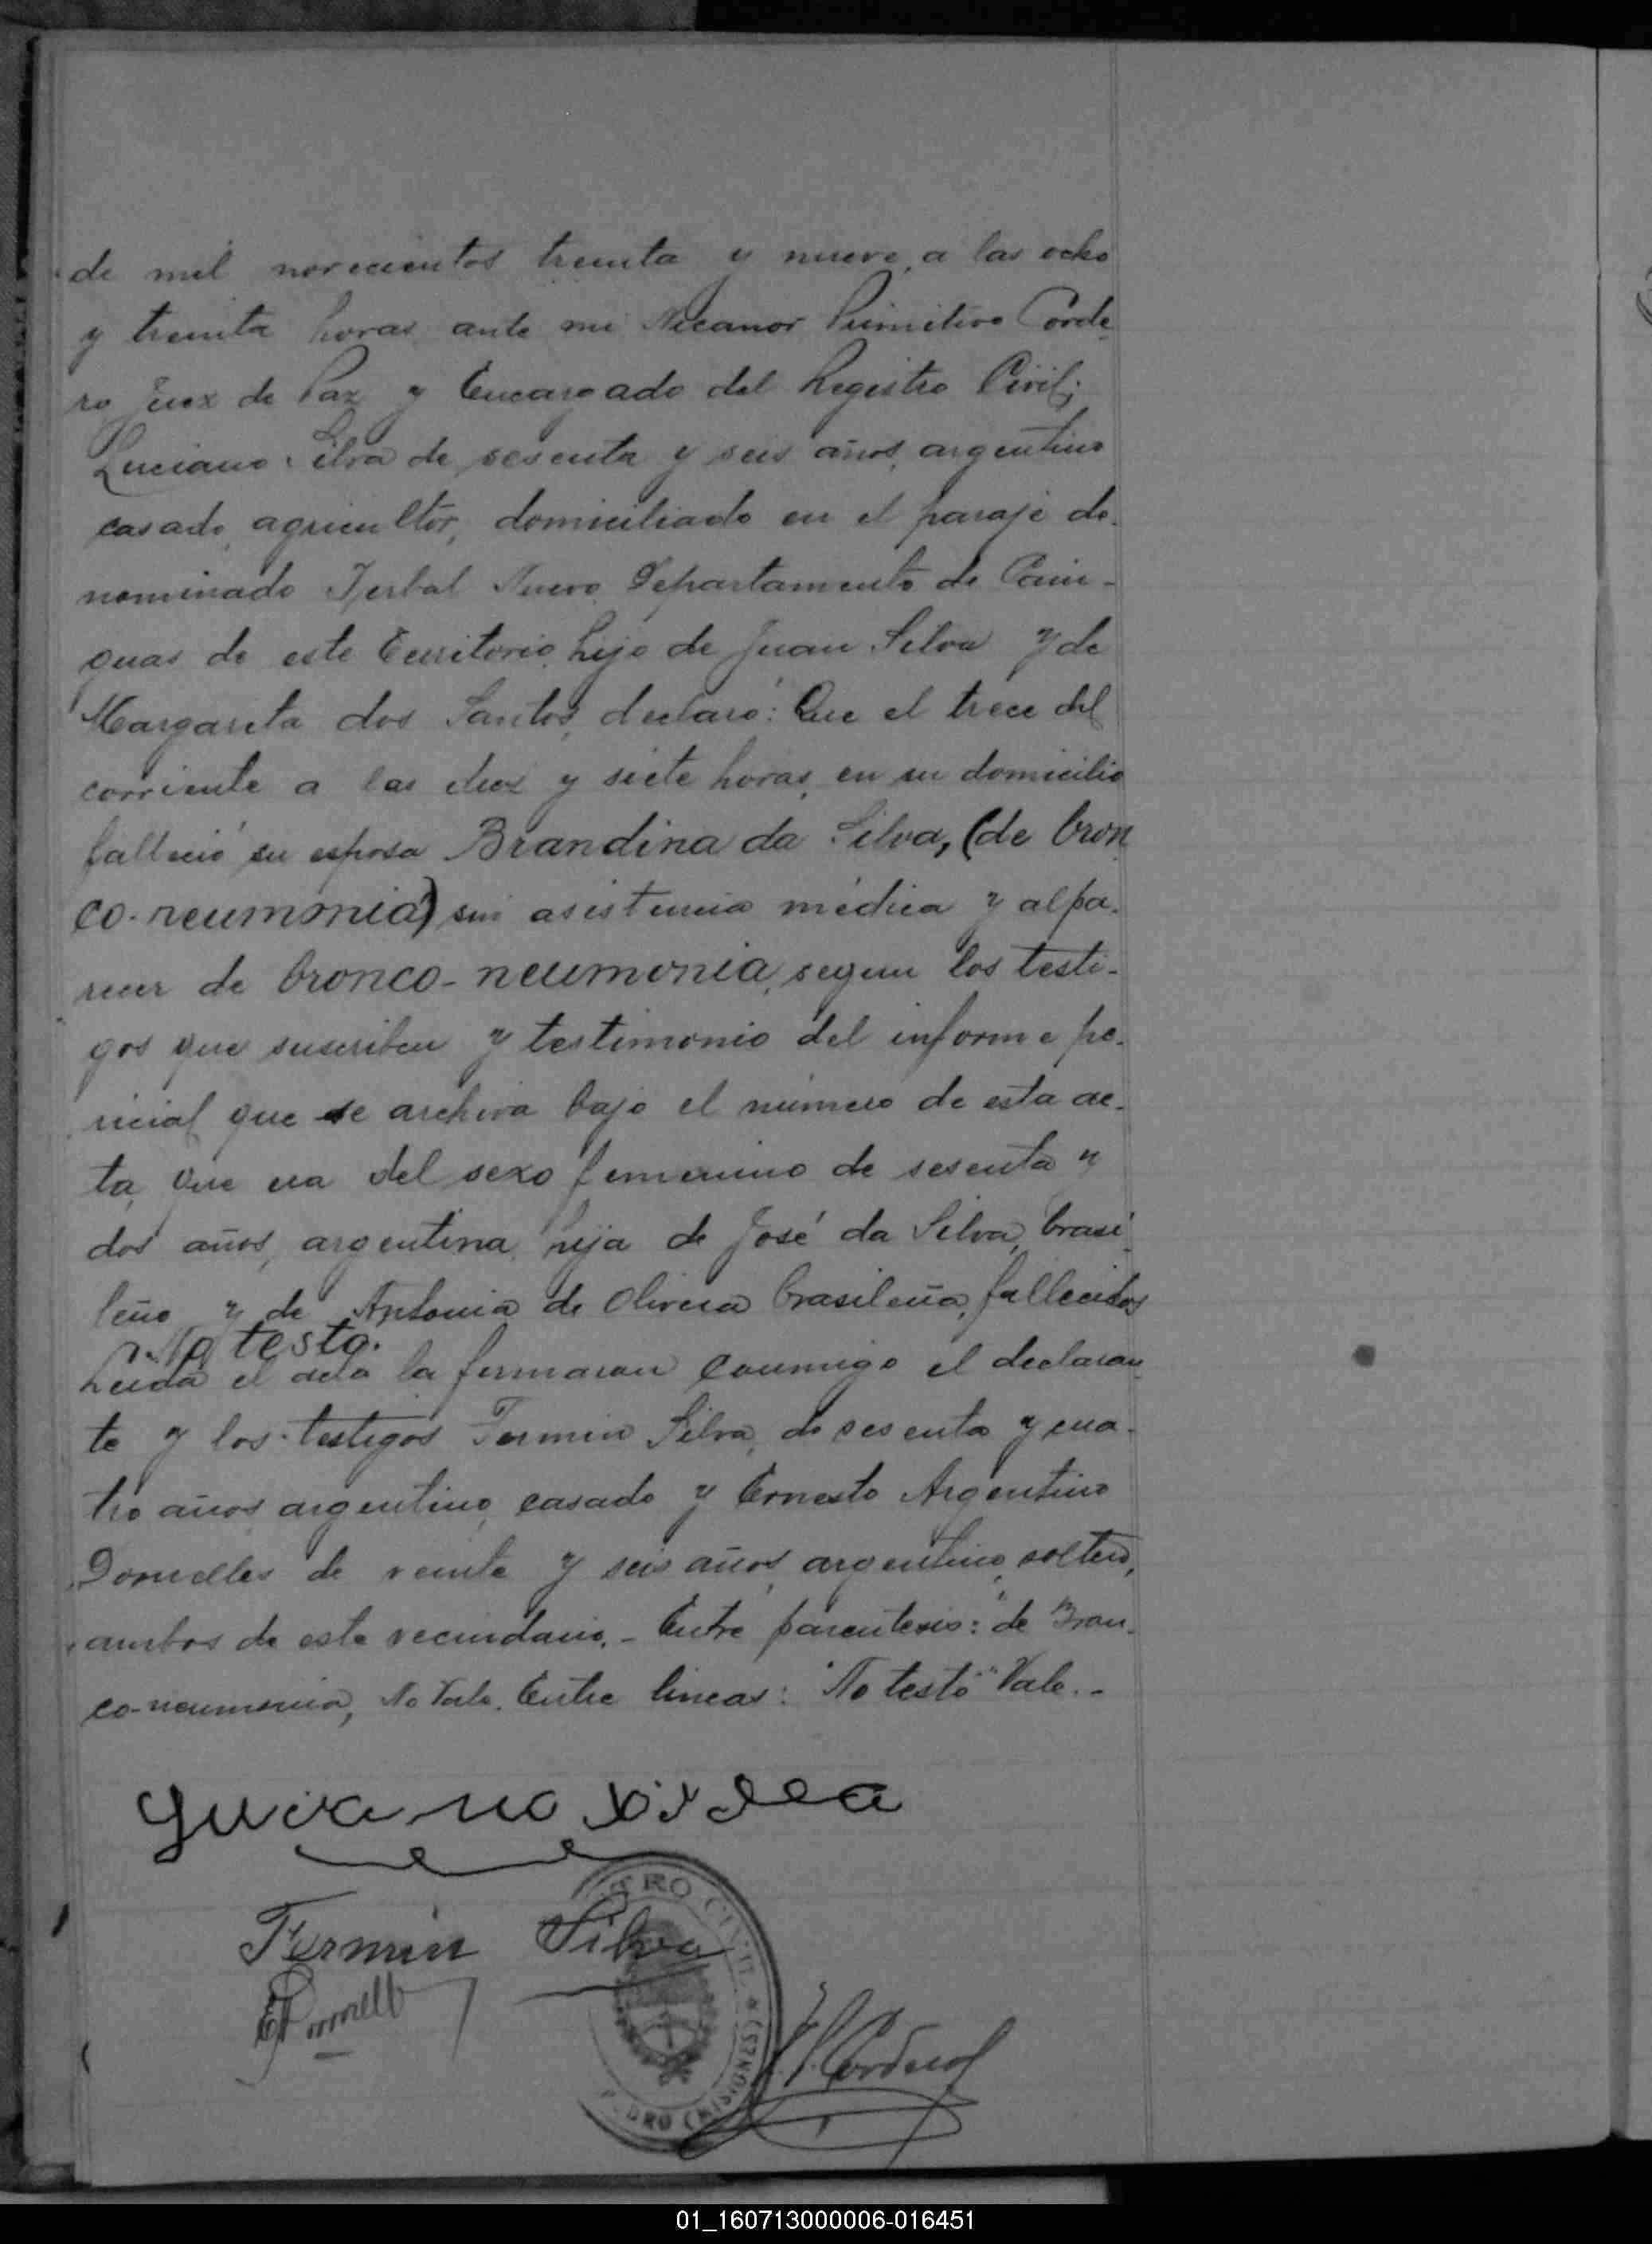 de mil novecientos treinta y nueve, a las ocho
y treinta horas, ante mi Nicanor Primitivo Corde
ro Juez de Paz y Encargado del Registro Civil;
Luciano Silva de sesenta y seis años, argentino
casado, agricultor, domiciliado en el paraje de-
nominado Yerbal Nuevo Departamento de Cain-
guas de este Territorio, hijo de Juan Silva y de
Margarita dos Santos, declaró: Que el trece del
corriente a las diez y siete horas, en su domicilio
falleció su esposa Brandina da Silva, (de bron
co-neumonia) sin asistencia médica y al pa-
recer de bronco-neumonia, segun los testi-
gos que suscriben y testimonio del informe pe-
ricial que se archiva bajo el número de esta ac-
ta, que era del sexo femenino de sesenta y
dos años, argentina, hija de José da Silva, brasi
leño y de Antonia de Olivera brasileña, fallecidos
No testo.
Leida el acta la firmaron conmigo el declaran
te y los testigos Fermin Silva, de sesenta y cua-
tro años argentino, casado y Ernesto Argentino
Dornelles de veinte y seis años, argentino, soltero,
ambos de este vecindario.- Entre parentesis: "de Bron-
co-neumonia, No Vale. Entre lineas: "No testo" Vale.-
Luciano Silva
Fermin Silva
E A Dornelles
N. P. Cordero
TRO CIVIL * (MISIONES)
DRO
01_160713000006-016451